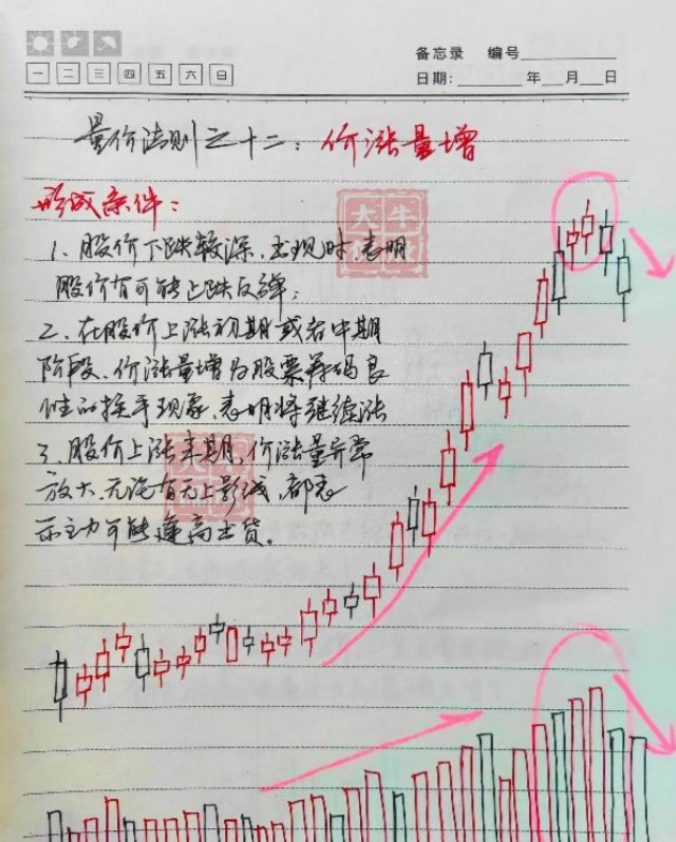 备忘录 编号
一 二 三 四 五 六 日
日期: 年 月 日
量价法则之十二：价涨量增
形成条件：
1、股价下跌较深，出现时，表明
股价有可能止跌反弹；
2、在股价上涨初期或者中期
阶段、价涨量增为股票筹码良
性的换手现象，表明将继续涨
3、股价上涨末期，价涨量异常
放大，无论有无上影线，都表
示主力可能逢高出货。